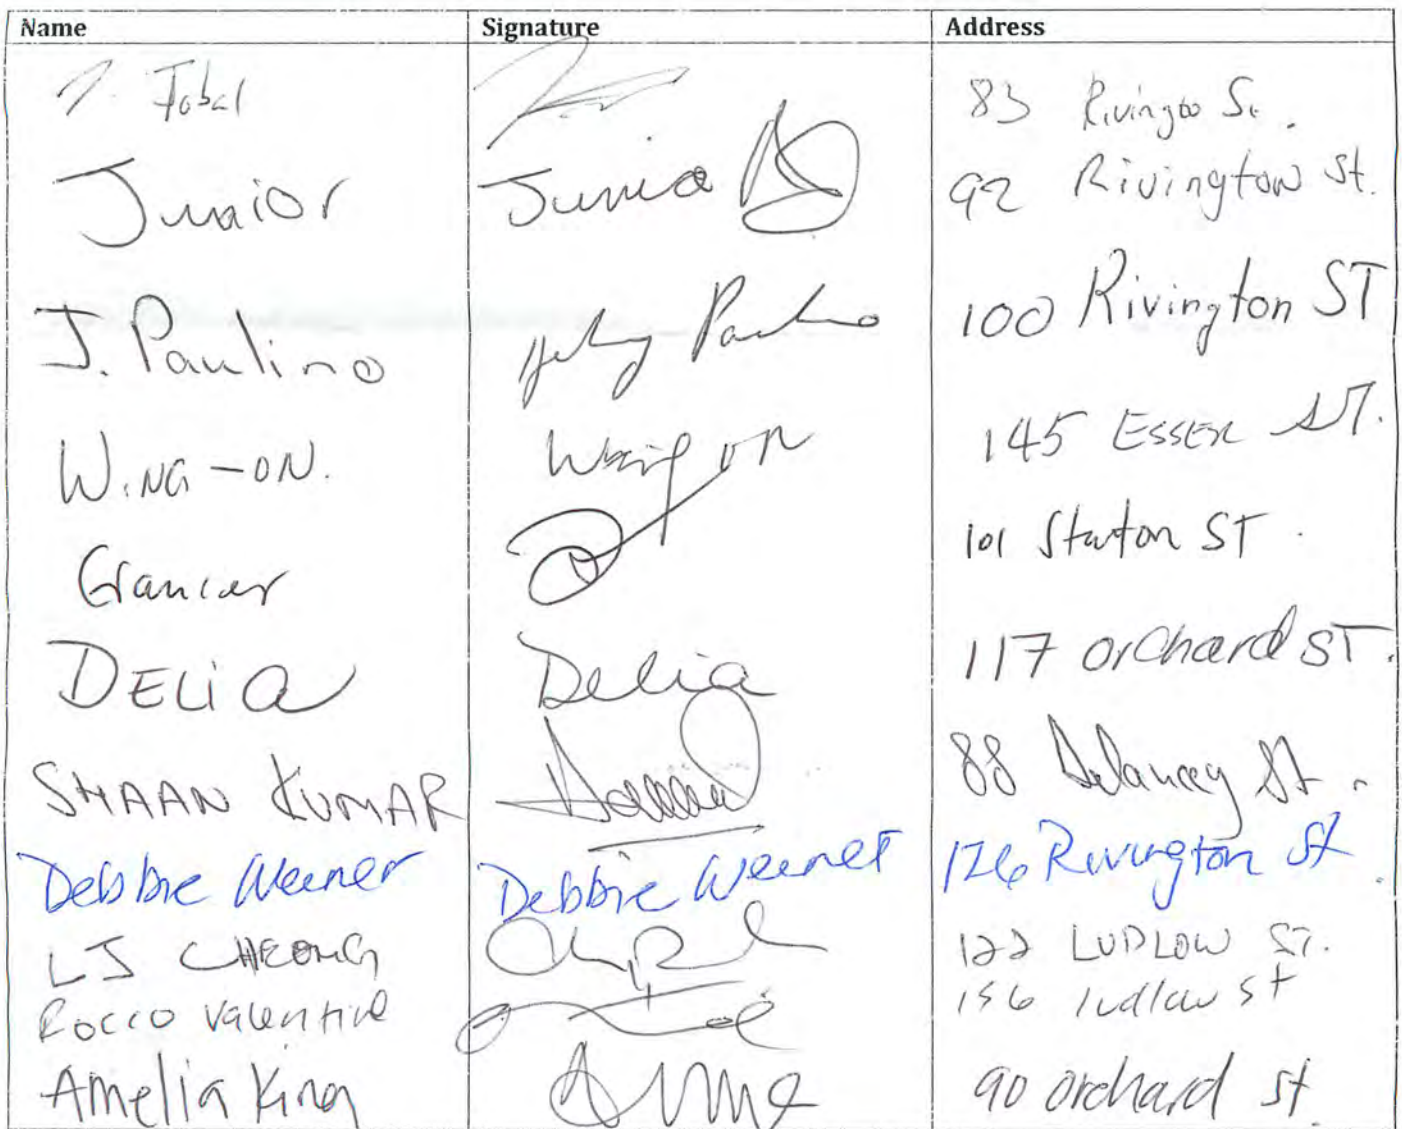 Name Signature Address
83 Rivington St.
Junior Junior 92 Rivington St.
J. Paulino Paulino 100 Rivington ST
WING-ON. Wing on 145 ESSEX ST.
101 Stanton ST
DELIA Delia 117 orchard ST.
SHAAN KUMAR 88 Delancey St.
Debbie Weener Debbie Weener 126 Rivington St
LJ CHEONG 122 LUDLOW ST.
Rocco Valentine 156 ludlow st
Amelia King 90 orchard st